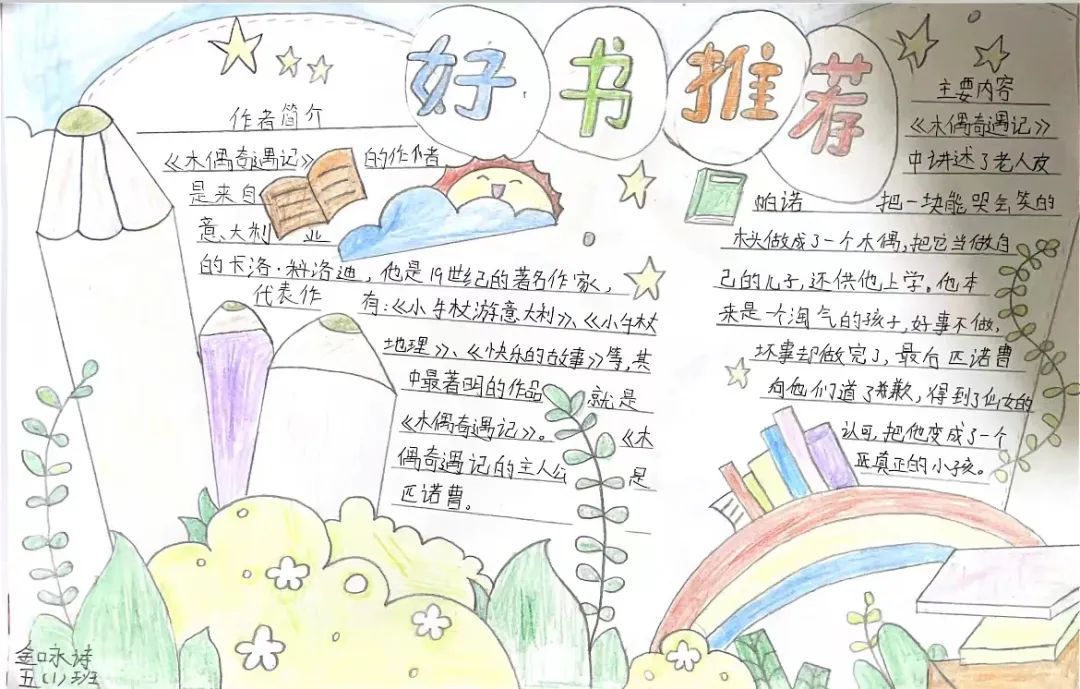 好书推荐
作者简介
《木偶奇遇记》的作者,
是来自
意大利 业
的卡洛·科洛迪，他是19世纪的著名作家，
代表作 有:《小手杖游意大利》、《小手杖
地理》、《快乐的故事》等,其
中最著明的作品 就是
《木偶奇遇记》。《木
偶奇遇记的主人公 是
匹诺曹。
主要内容
《木偶奇遇记》
中讲述了老人皮
帕诺 把一块能哭会笑的
木头做成了一个木偶,把它当做自
己的儿子,还供他上学。他本
来是一个淘气的孩子,好事不做,
坏事却做完了,最后匹诺曹
向他们道了歉,得到了仙女的
认可,把他变成了一个
真正的小孩。
金咏诗
五(1)班